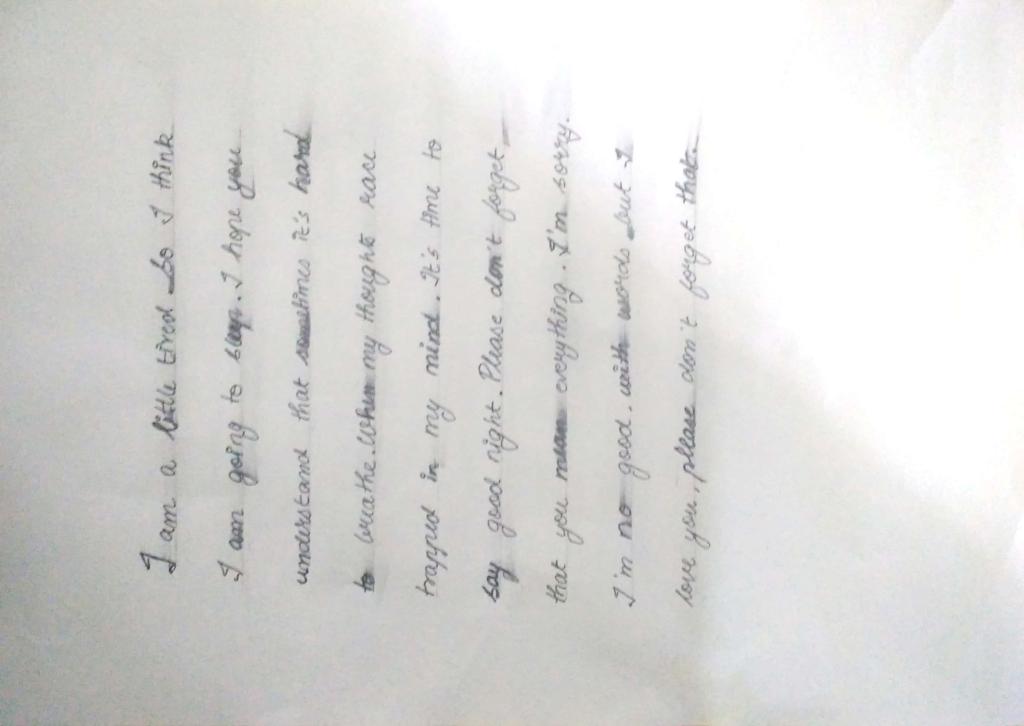 I am a little tired So I think
I am going to sleep. I hope you
understand that sometimes it's hard
to breathe. When my thoughts race
trapped in my mind. It's time to
say good night. Please don't forget
that you mean everything. I'm sorry.
I'm no good. with words but I
love you, please don't forget that.